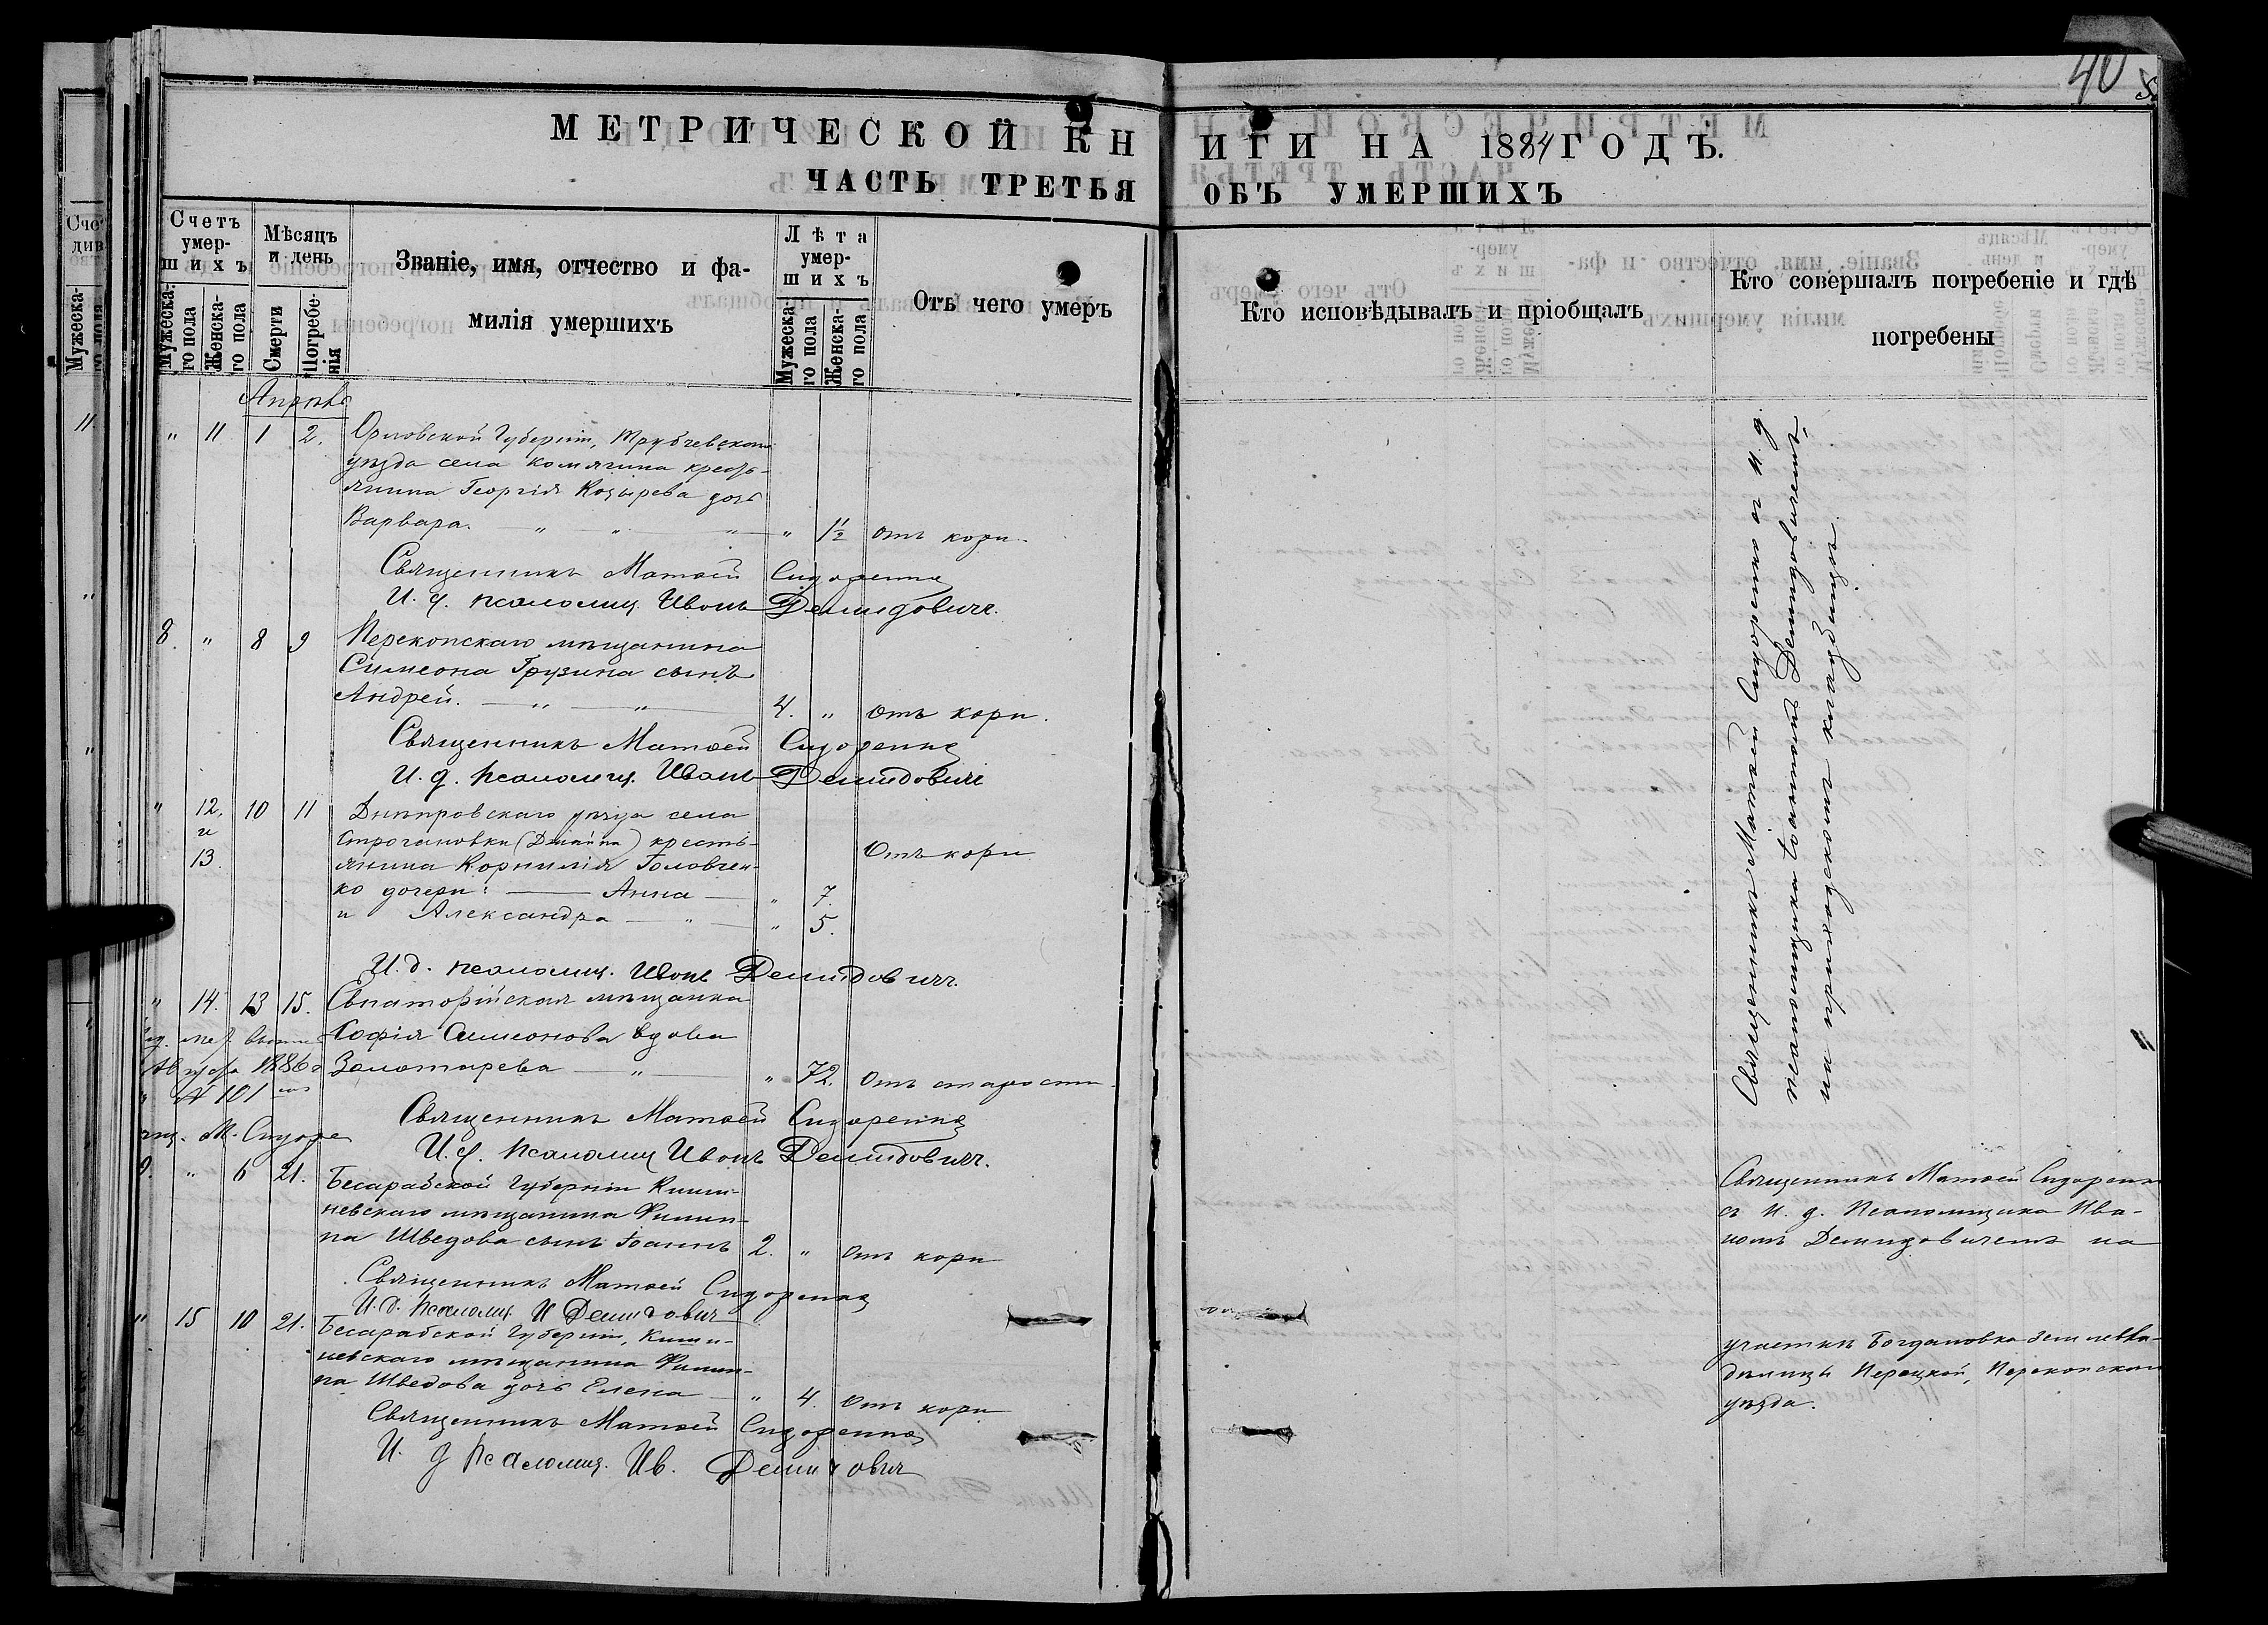 40
МЕТРИЧЕСКОЙ КНИГИ НА 1884 ГОДЪ.
ЧАСТЬ ТРЕТЬЯ ОБЪ УМЕРШИХЪ
Счетъ умер-
шихъ
Мужеска-
го пола
Женска-
го пола
Мѣсяцъ
и день
Смерти
Погребе-
нія
Званіе, имя, отчество и фа-
милія умершихъ
Лѣта
умер-
шихъ
Мужеска-
го пола
Женска-
го пола
Отъ чего умеръ
Кто исповѣдывалъ и пріобщалъ
Кто совершалъ погребеніе и гдѣ
погребены
Апрѣль
" 11 1 2. Орловской Губерніи, Трубчевскаго
уѣзда села Комягина кресть-
янина Георгія Козырева дочь
Варвара. — " — " — " — " 1½ отъ кори.
Священникъ Матѳей Сидоренко
И. д. псаломщ. Иванъ Демидовичъ.
8. " 8 9 Перекопскаго мѣщанина
Симеона Грузина сынъ
Андрей. — " — " — 4. " отъ кори.
Священникъ Матѳей Сидоренко
И. д. псаломщ. Иванъ Демидовичъ
" 12. 10 11 Днѣпровскаго уѣзда села
и Строгановки ( ) кресть-
13. янина Корнилія Головчен- Отъ кори
ко дочери: — Анна — " 7.
и Александра — " — " 5.
И. д. псаломщ. Иванъ Демидовичъ.
" 14. 13 15. Евпаторійская мѣщанка
Софія Симеонова вдова
Золотарева — " — " 72. Отъ старости.
1886
№ 101
М. Сидоре
Священникъ Матѳей Сидоренко
И. д. псаломщ Иванъ Демидовичъ.
9. " 6 21. Бесарабской Губерніи Киши-
невскаго мѣщанина Филип-
па Шведова сынъ Іоаннъ 2. " Отъ кори
Священникъ Матѳей Сидоренко
И. д. псаломщ. И Демидовичъ
" 15 10 21. Бесарабской Губерніи, Киши-
невскаго мѣщанина Филип-
па Шведова дочь Елена — " 4. Отъ кори
Священникъ Матѳей Сидоренко
И. д псаломщ. Ив. Демидовичъ
Священникъ Матѳей Сидоренко съ И. д.
псаломщика Іоанномъ Демидовичемъ,
на приходскомъ кладбищѣ.
Священникъ Матѳей Сидоренко
съ И. д. Псаломщика Ива-
номъ Демидовичемъ на
участкѣ Богдановка землевла-
дѣлицы Перецкой, Перекопскаго
уѣзда.
Сче
див
Мужеска-
11.